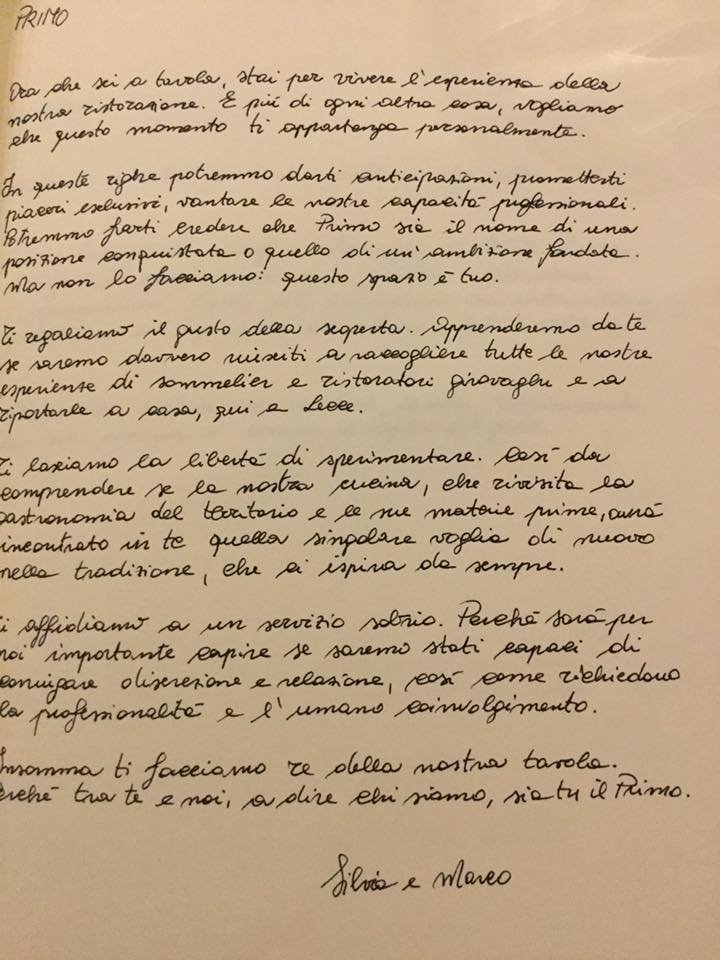 PRIMO
Ora che sei a tavola, stai per vivere l'esperienza della
nostra ristorazione. E più di ogni altra cosa, vogliamo
che questo momento ti appartenga personalmente.
In queste righe potremmo darti anticipazioni, prometterti
piaceri esclusivi, vantare le nostre capacità professionali.
Potremmo farti credere che Primo sia il nome di una
posizione conquistata o quello di un'ambizione fondata.
Ma non lo facciamo: questo spazio è tuo.
Ti regaliamo il gusto della scoperta. Apprenderemo da te
se saremo davvero riusciti a raccogliere tutte le nostre
esperienze di sommelier e ristoratori girovaghi e a
riportarle a casa, qui a Lecce.
Ti lasciamo la libertà di sperimentare. Così da
comprendere se la nostra cucina, che rivisita la
gastronomia del territorio e le sue materie prime, avrà
incontrato in te quella singolare voglia di nuovo
nella tradizione, che ci ispira da sempre.
Ti affidiamo a un servizio sobrio. Perché sarà per
noi importante capire se saremo stati capaci di
coniugare discrezione e relazione, così come richiedono
la professionalità e l'umano coinvolgimento.
Insomma ti facciamo re della nostra tavola.
Perché tra te e noi, a dire chi siamo, sia tu il Primo.
Silvia e Marco